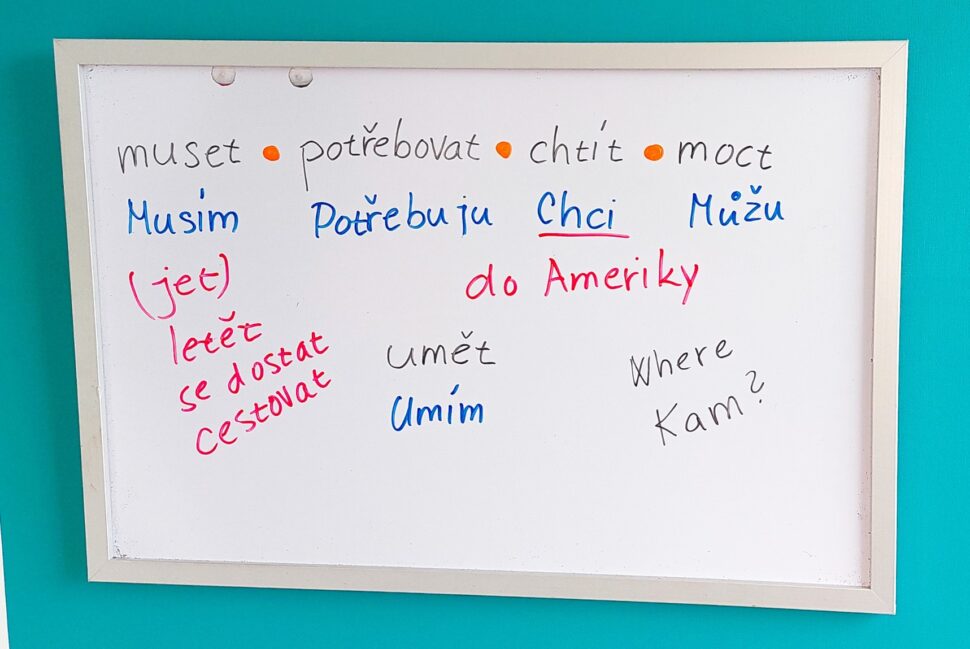 muset • potřebovat • chtít • moct
Musím Potřebuju Chci Můžu
(jet) do Ameriky
letět
se dostat
cestovat
umět
Umím
Where
Kam?